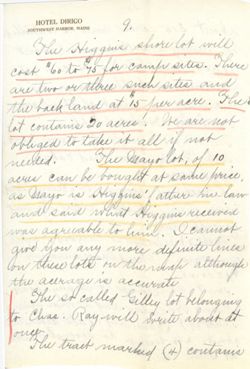 HOTEL DIRIGO
SOUTHWEST HARBOR, MAINE
9.
The Higgins shore lot will
cost $60 to $75 for camp sites. There
are two or three such sites and
the back land at $15 per acre. The
lot contains 20 acres. We are not
obliged to take it all if not
needed. The Mayo lot, of 10
acres can be bought at same price,
as Mayo is Higgins' father in law
and said what Higgins received
was agreeable to him. I cannot
give you any more definite lines
on these lots on the map although
the acreage is accurate
The so called Gilley lot belonging
to Chas. Ray will write about at
once.
The tract marked (4) contains